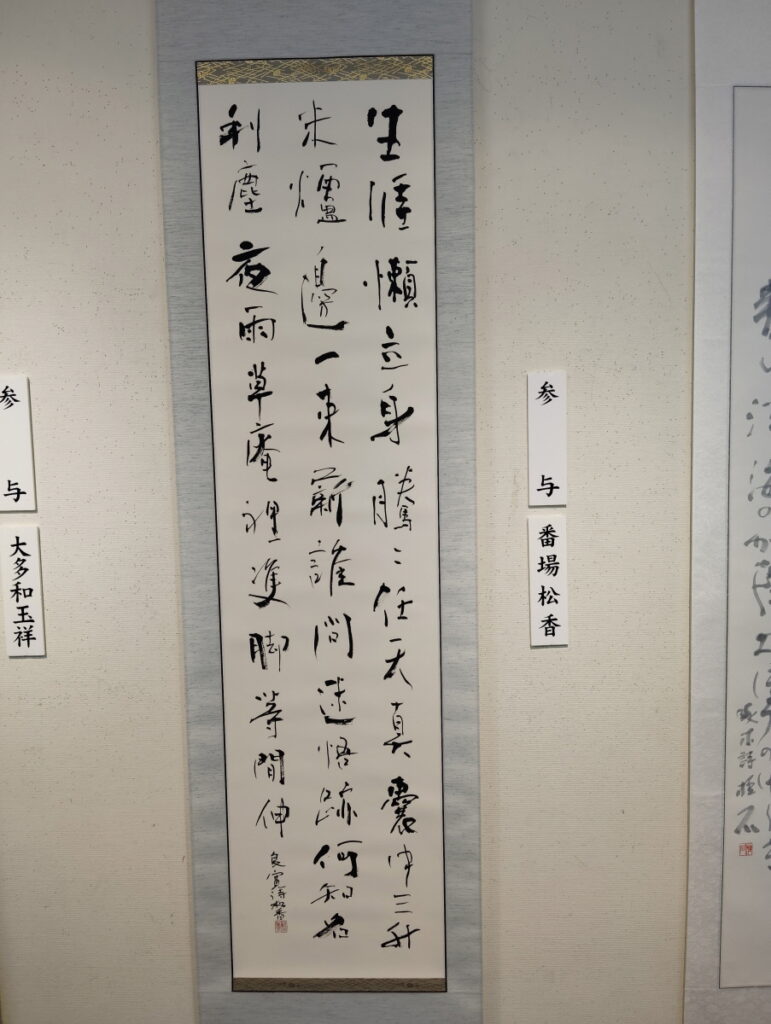 生涯懶立身騰々任天真囊中三升
米爐邊一束薪誰問迷悟跡何知名
利塵夜雨草庵裡雙脚等間伸
良寛詩 松香
参与
番場松香
参与
大多和玉祥